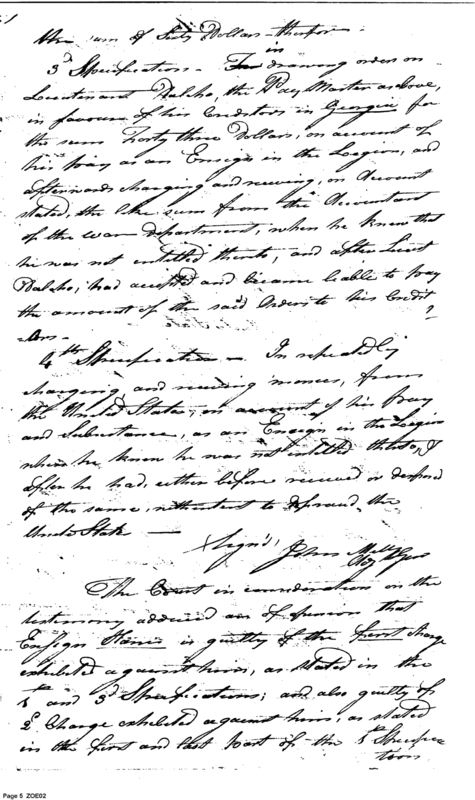 the sum of Sixty Dollars therefor
in
3d Specification - In drawing orders on
Lieutenant Dalcho, the Pay Master as above,
in favour of his Creditors in Georgia for
the sum Forty three Dollars, on account of
his pay as an Ensign in the Legion, and
afterwards charging and receiving, on Account
stated, the like sum from the Accountant
of the War department, when he knew that
he was not entitled thereto, and after Lieut
Dalcho, had accepted and became liable to pay
the amount of the said Orders to his Credit
-ors -
4th Specification - In repeatedly
charging and receiving monies, from
the United States, on account of his pay
and Subsistance, as an Ensign in the Legion
when he knew he was not entitled thereto, &
after he had, either before received or disposed
of the same, with intent to defraud the
United State -
Sign'd, John Mills
The Court in consideration on the
testimony adduced are of opinion that
Ensign is guilty of the first charge
exhibited against him, as stated in the
1st and 3d Specifications; and also guilty of
2d Charge exhibited against him, as stated
in the first and last part of the 1st Specifica
tions
Page 5 ZOE02